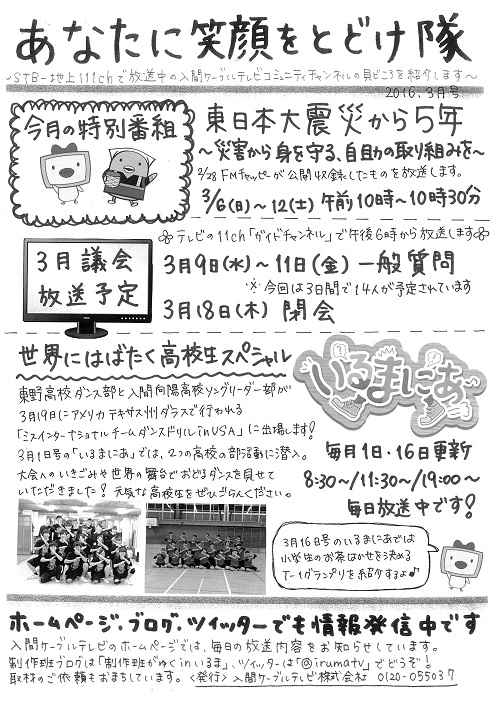 あなたに笑顔をとどけ隊
~STB-地上111chで放送中の入間ケーブルテレビコミュニティチャンネルの見どころを紹介します~
2016.3月号
今月の特別番組
東日本大震災から5年
~災害から身を守る、自助の取り組みを~
2/28 FMチャッピーが公開収録したものを放送します。
3/6(日)~12(土) 午前10時~10時30分
3月議会
放送予定
テレビの11ch「ガイドチャンネル」で午後6時から放送します
3月9日(水)~11日(金) 一般質問
※今回は3日間で14人が予定されています
3月18日(木) 閉会
世界にはばたく高校生スペシャル
東野高校ダンス部と入間向陽高校ソングリーダー部が
3月19日にアメリカテキサス州ダラスで行われる
「ミスインターナショナルチームダンスドリルinUSA」に出場します!
3月1日号の「いるまにあ」では、2つの高校の部活動に潜入。
大会へのいきごみや世界の舞台でおどるダンスを見せて
いただきました!元気な高校生をぜひごらんください。
いるまにあ
毎月1日・16日更新
8:30~/11:30~/19:00~
毎日放送中です!
3月16日号のいるまにあでは
小学生のお茶はかせを決める
T-1グランプリを紹介するよ♪
ホームページ、ブログ、ツイッターでも情報発信中です
入間ケーブルテレビのホームページでは、毎日の放送内容をお知らせしています。
制作班ブログは「制作班がゆくinいるま」、ツイッターは「@irumatv」でどうぞ!
取材のご依頼もおまちしています。<発行>入間ケーブルテレビ株式会社 0120-055037